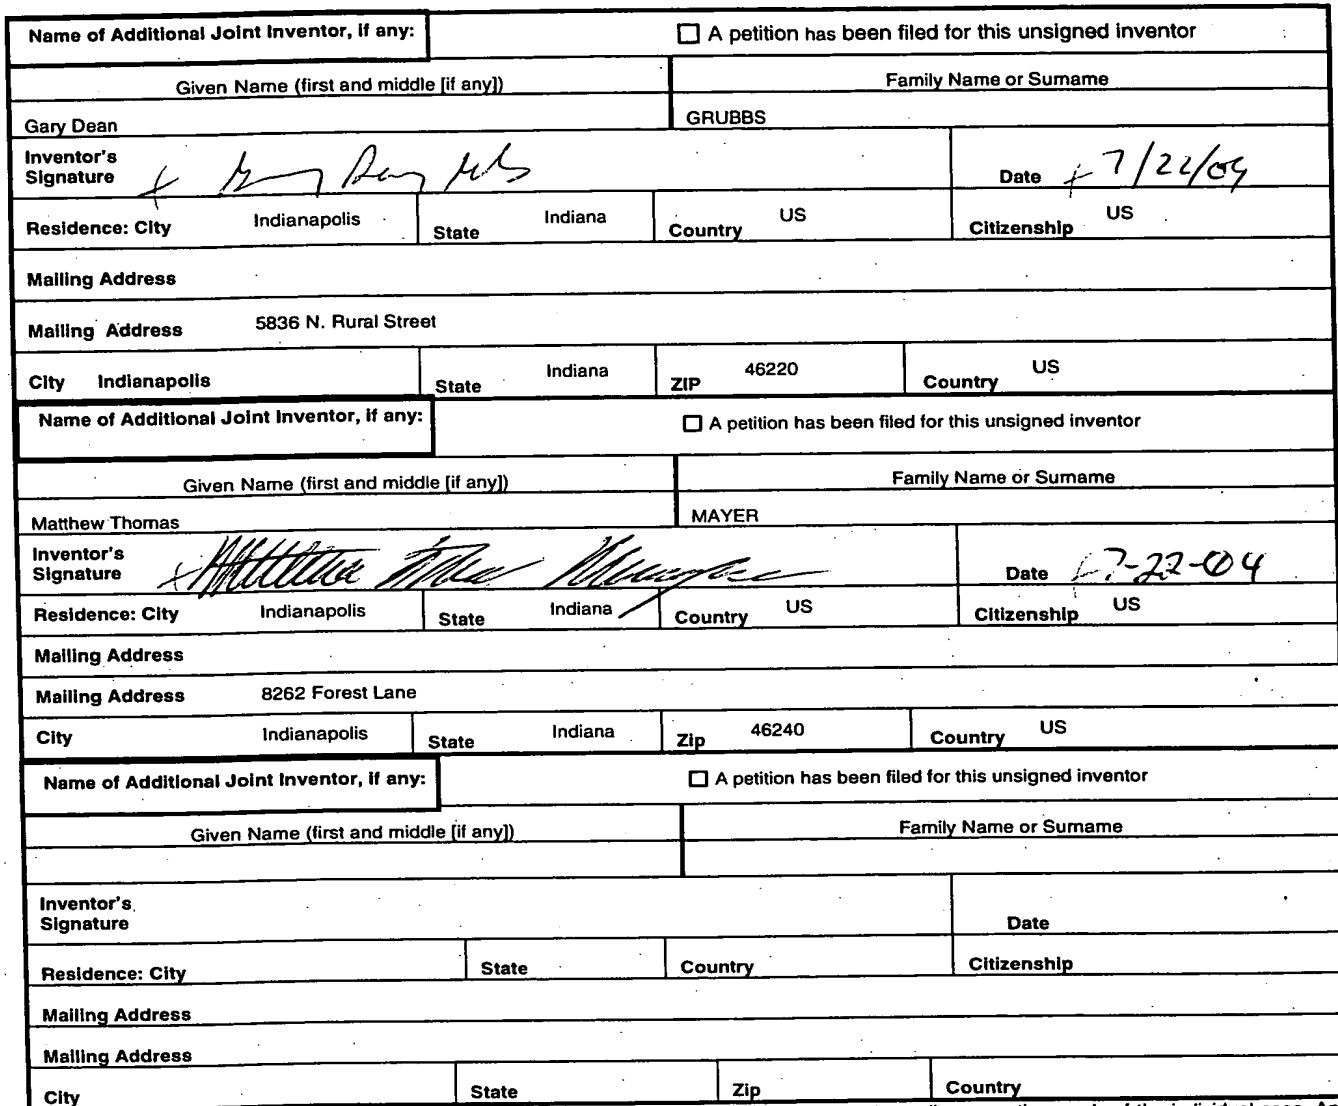 Name of Additional Joint Inventor, if any: ☐ A petition has been filed for this unsigned inventor
Given Name (first and middle [if any]) Family Name or Surname
Gary Dean GRUBBS
Inventor's
Signature Date 7/22/04
Residence: City Indianapolis State Indiana Country US Citizenship US
Mailing Address
Mailing Address 5836 N. Rural Street
City Indianapolis State Indiana ZIP 46220 Country US
Name of Additional Joint Inventor, if any: ☐ A petition has been filed for this unsigned inventor
Given Name (first and middle [if any]) Family Name or Surname
Matthew Thomas MAYER
Inventor's
Signature Date 7-22-04
Residence: City Indianapolis State Indiana Country US Citizenship US
Mailing Address
Mailing Address 8262 Forest Lane
City Indianapolis State Indiana Zip 46240 Country US
Name of Additional Joint Inventor, if any: ☐ A petition has been filed for this unsigned inventor
Given Name (first and middle [if any]) Family Name or Surname
Inventor's
Signature Date
Residence: City State Country Citizenship
Mailing Address
Mailing Address
City State Zip Country